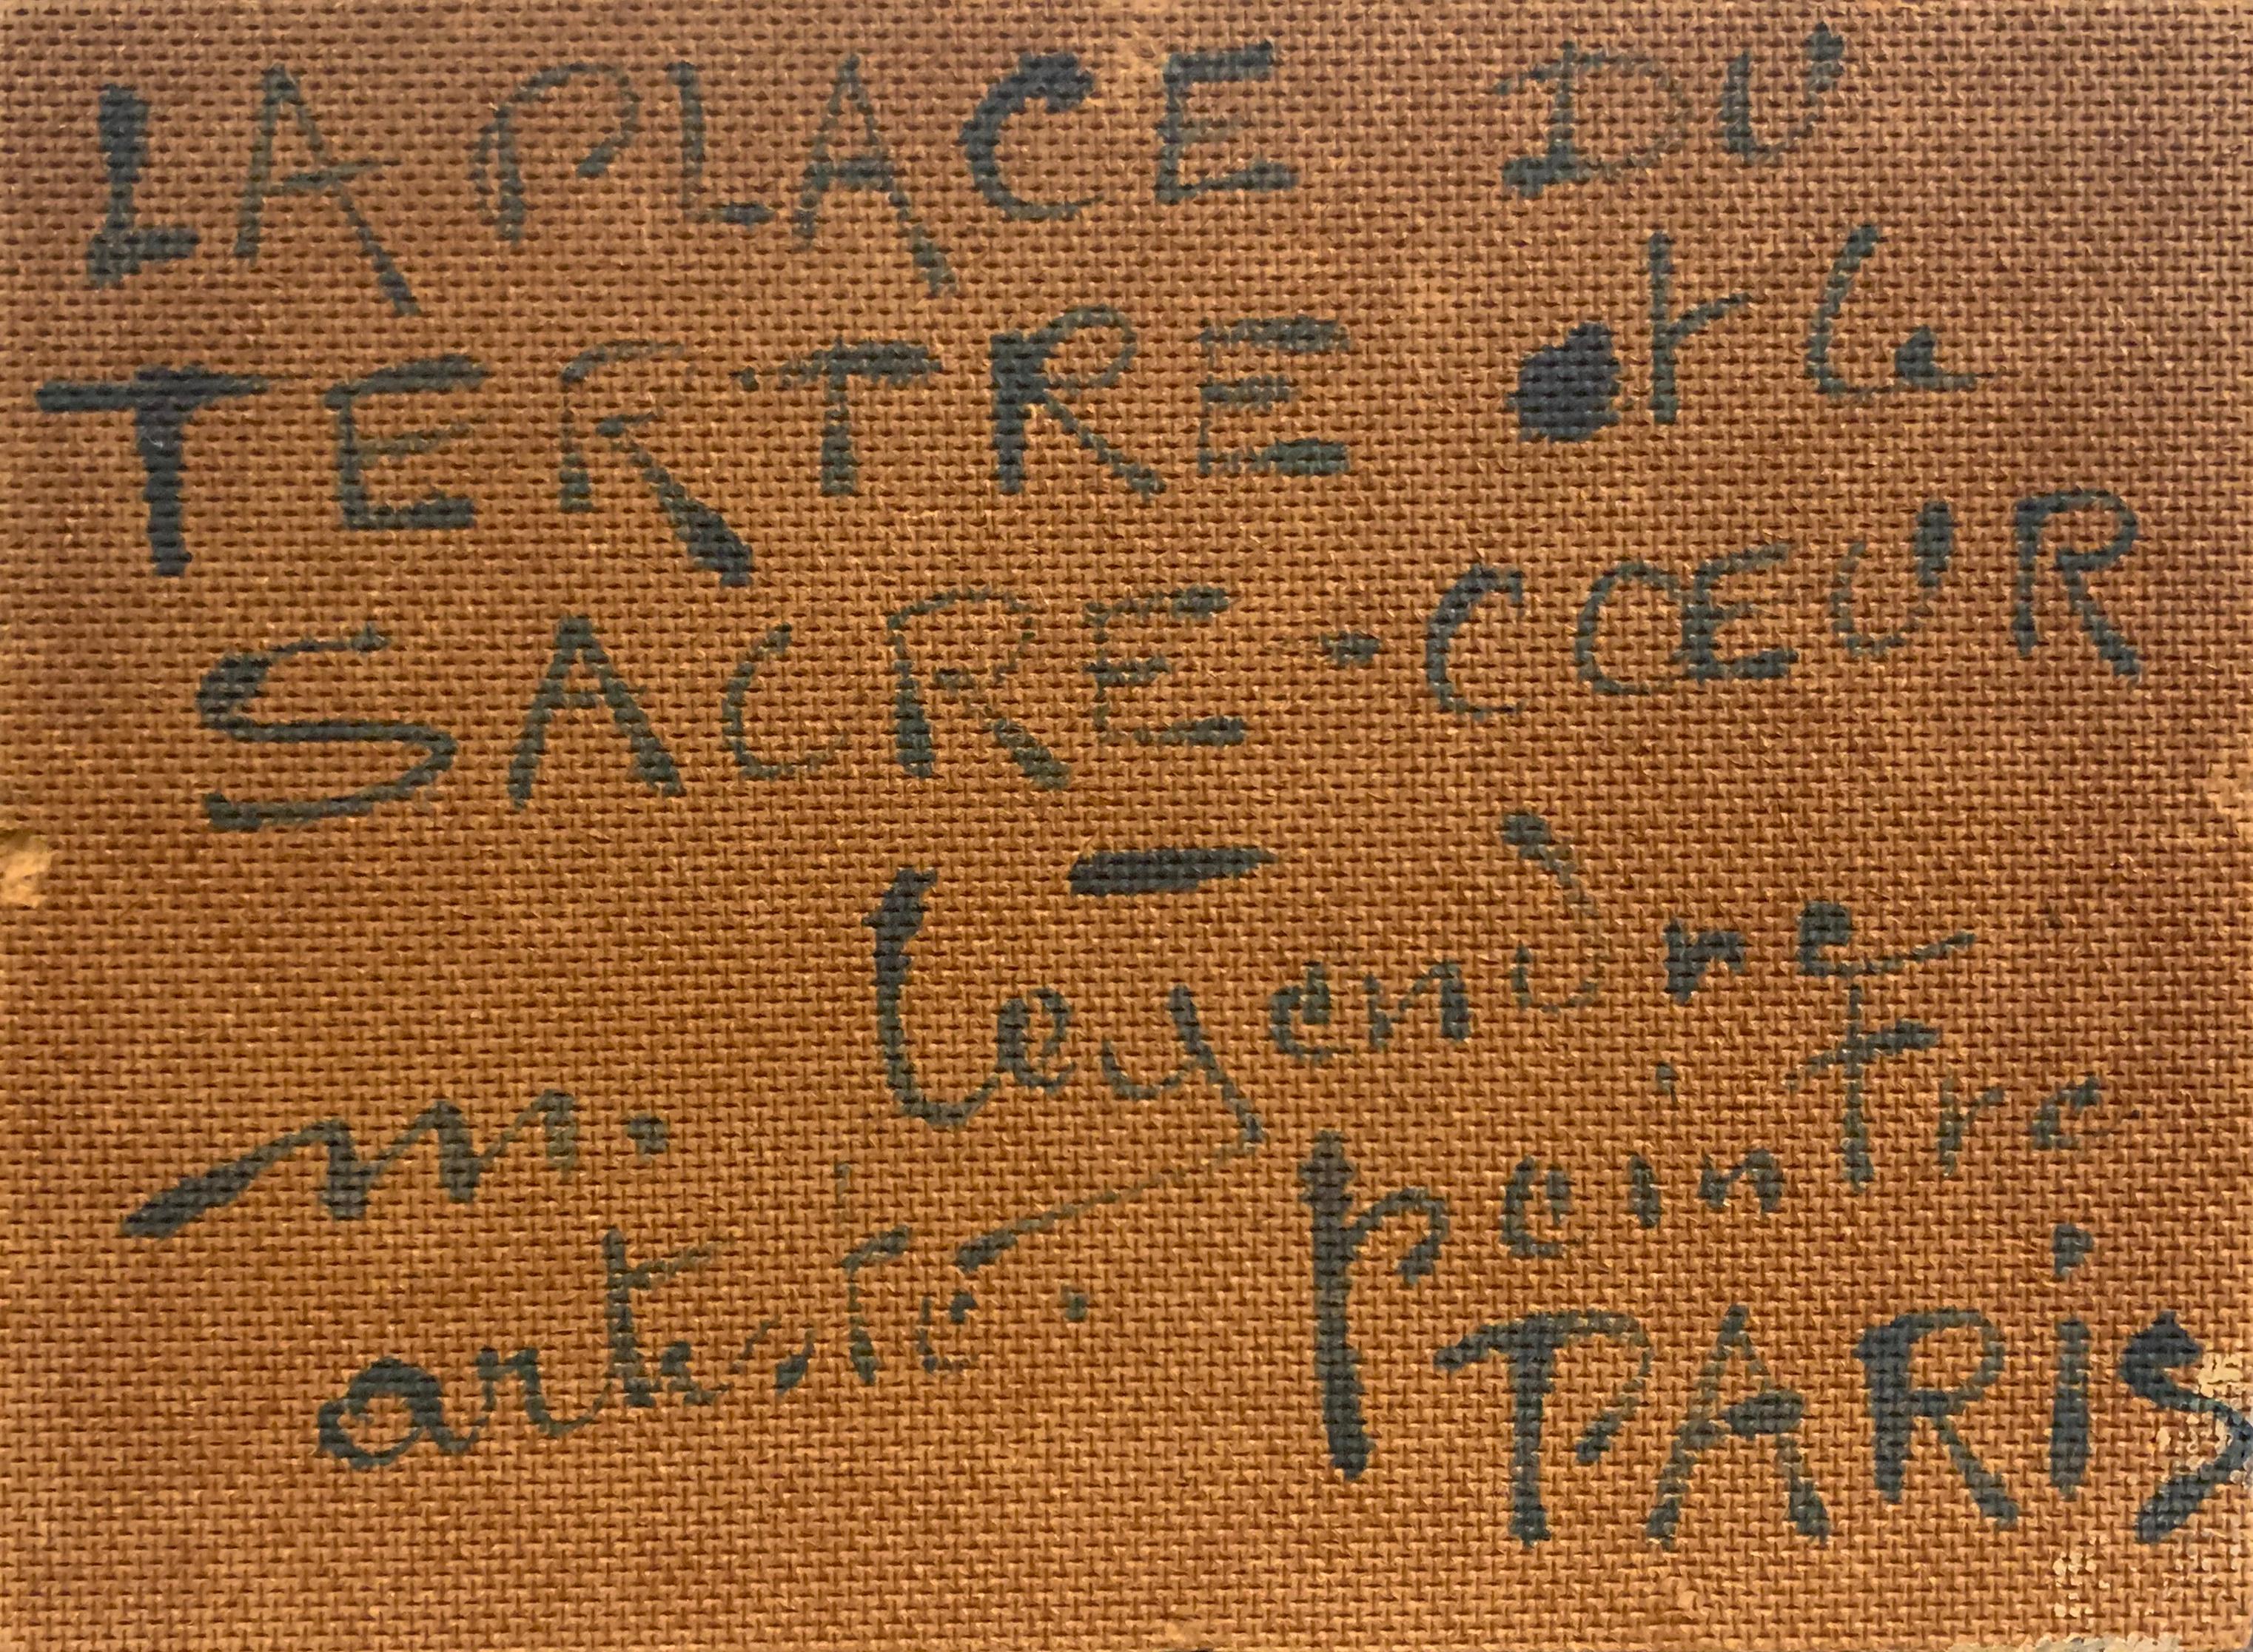 LA PLACE DU
TERTRE et le
SACRE-CŒUR
m. Leyendre
artiste. peintre
PARiS